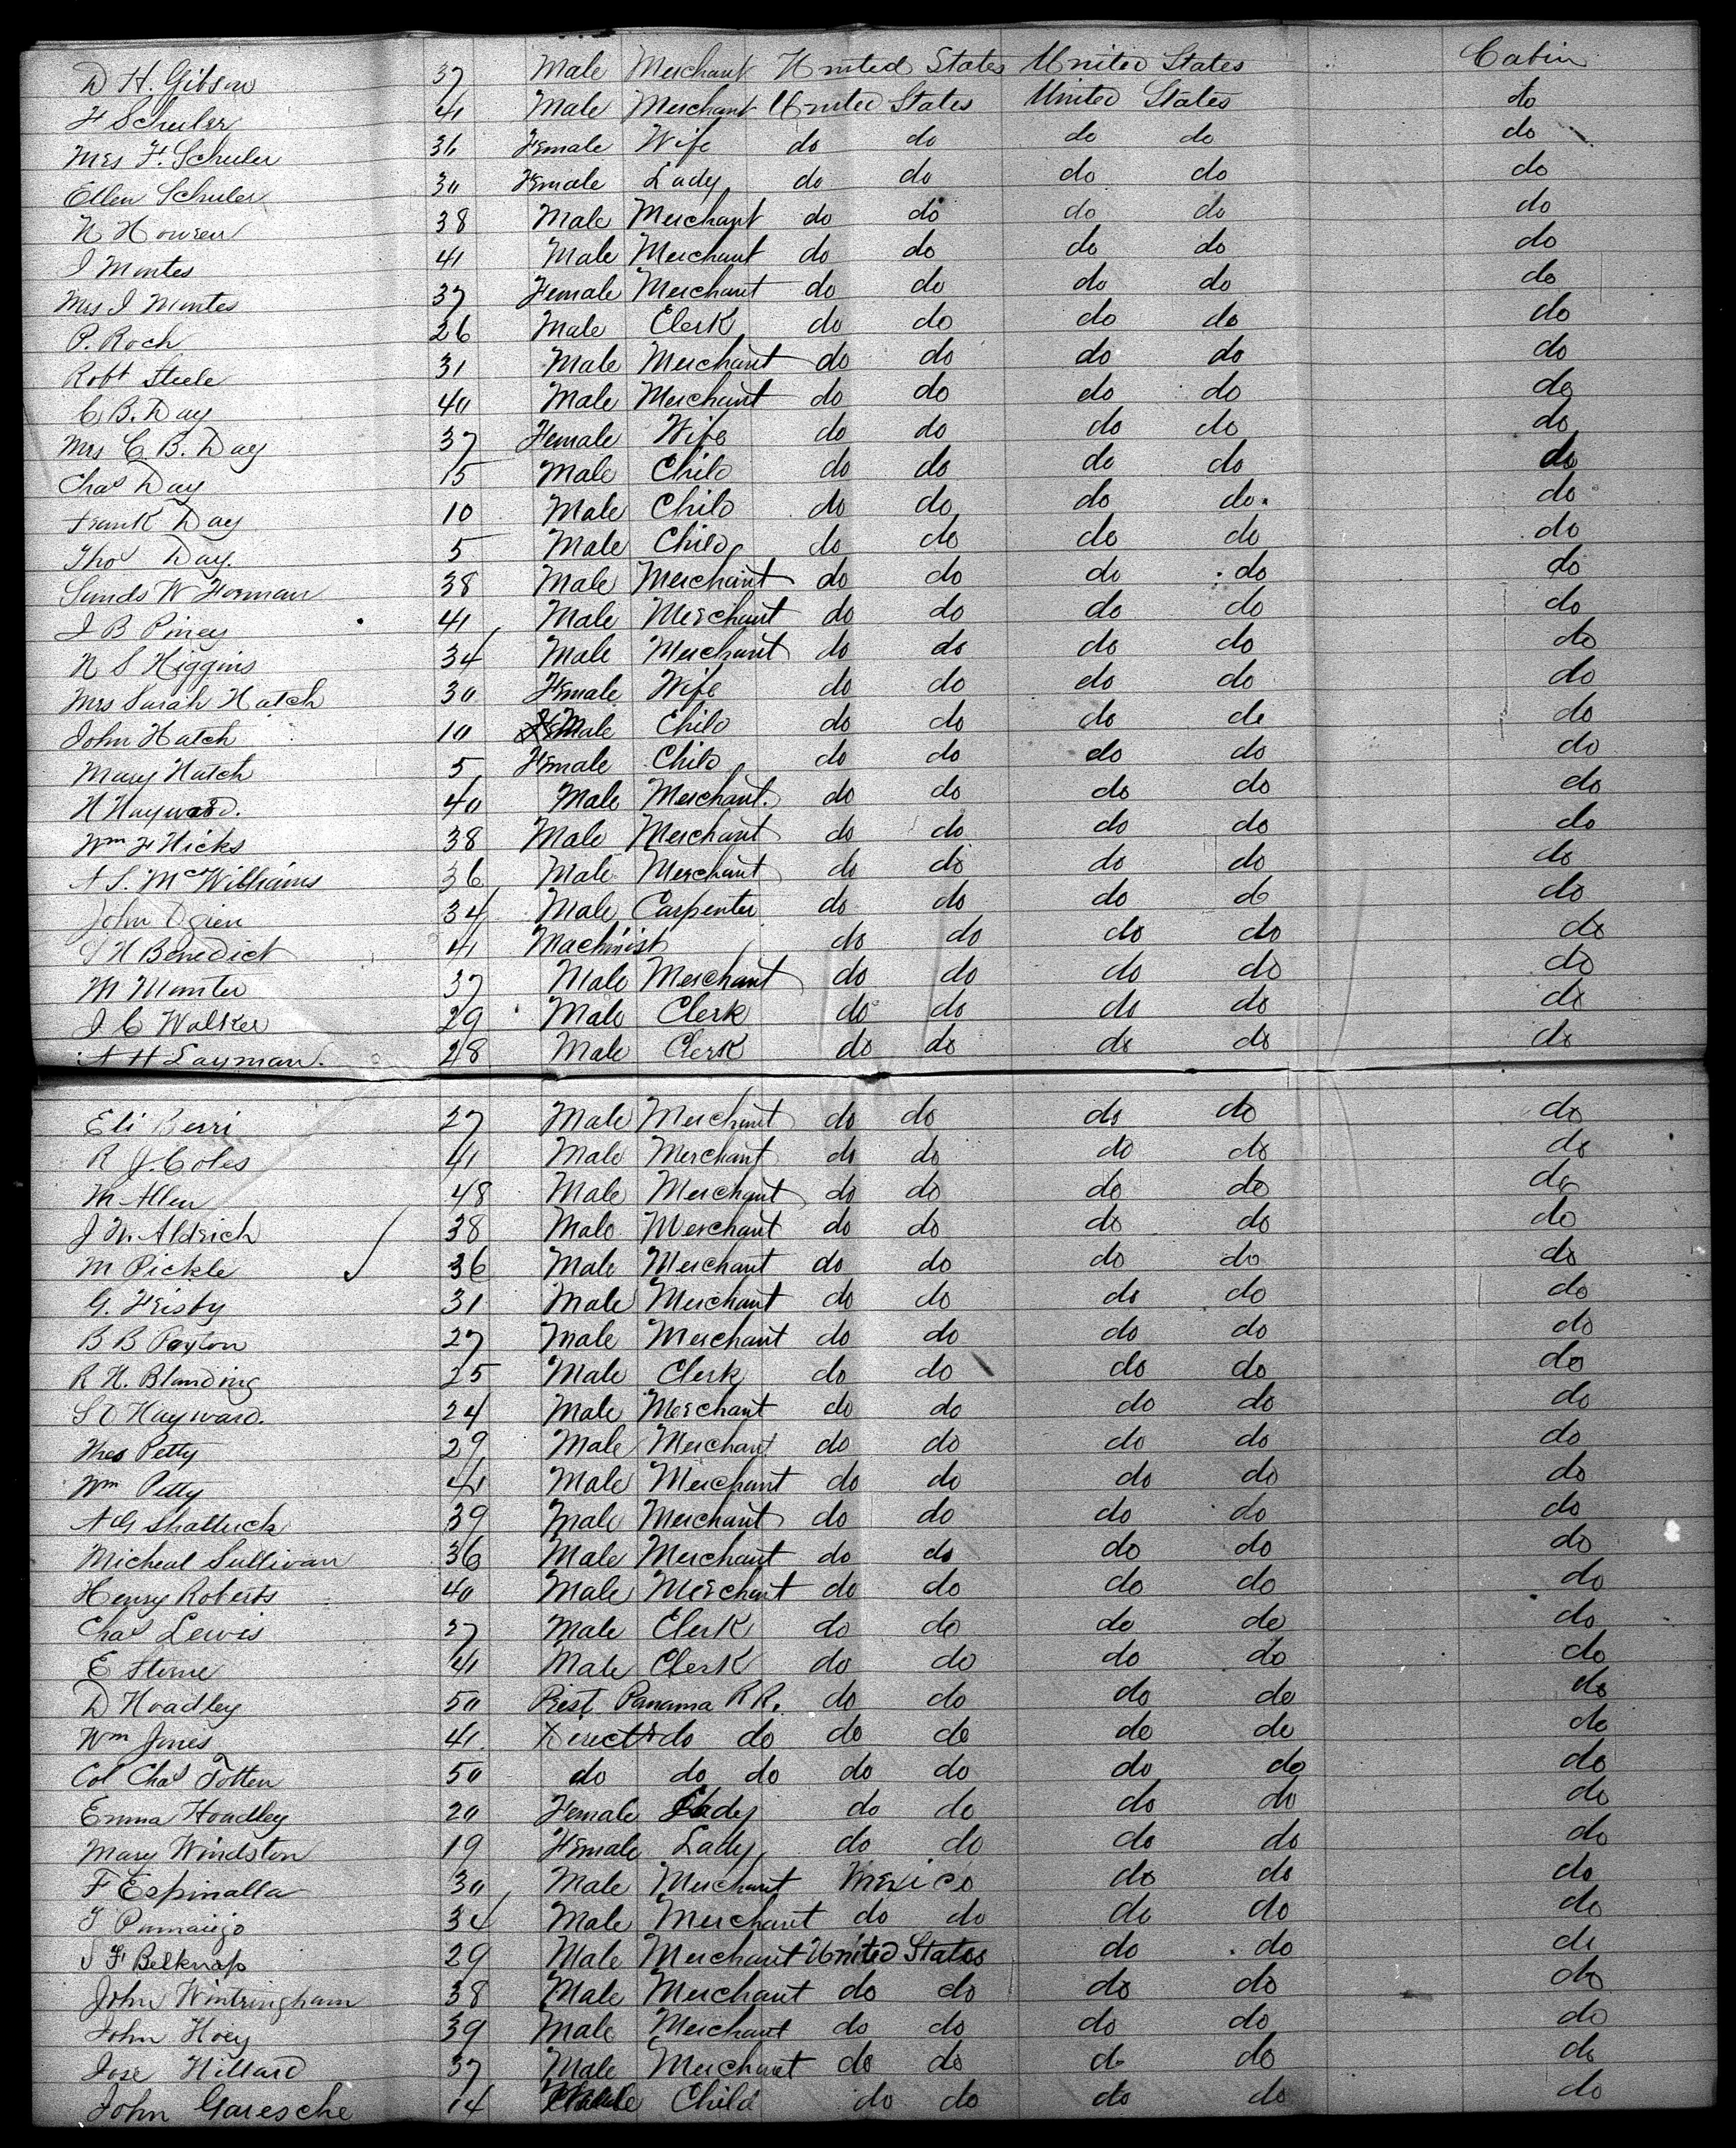 D H. Gibson 37 Male Merchant United States United States Cabin
F Schuler 41 Male Merchant United States United States do
Mrs F. Schuler 36 Female Wife do do do do do
Ellen Schuler 30 Female Lady do do do do do
N Howren 38 Male Merchant do do do do do
J Montes 41 Male Merchant do do do do do
Mrs J Montes 37 Female Merchant do do do do do
P. Roch 26 Male Clerk do do do do do
Robt Steele 31 Male Merchant do do do do do
C B. Day 40 Male Merchant do do do do do
Mrs C B. Day 37 Female Wife do do do do do
Chas Day 15 Male Child do do do do do
Frank Day 10 Male Child do do do do do
Thos Day. 5 Male Child do do do do do
Sands W Forman 38 Male Merchant do do do do do
J B Piney 41 Male Merchant do do do do do
N S Higgins 34 Male Merchant do do do do do
Mrs Sarah Hatch 30 Female Wife do do do do do
John Hatch 10 Male Child do do do do do
Mary Hatch 5 Female Child do do do do do
H Hayward. 40 Male Merchant. do do do do do
Wm F Hicks 38 Male Merchant do do do do do
A S. McWilliams 36 Male Merchant do do do do do
John Ogien 34 Male Carpenter do do do do do
S H Benedict 41 Machinist do do do do do
M Munter 37 Male Merchant do do do do do
J C Walker 29 Male Clerk do do do do do
A H Layman. 28 Male Clerk do do do do do
Eli Berri 27 Male Merchant do do do do do
R J. Coles 41 Male Merchant do do do do do
M Allen 48 Male Merchant do do do do do
J W. Aldrich 38 Male Merchant do do do do do
M Pickle 36 Male Merchant do do do do do
G. Frisby 31 Male Merchant do do do do do
B B Payton 27 Male Merchant do do do do do
R H. Blanding 25 Male Clerk do do do do do
S O Hayward. 24 Male Merchant do do do do do
Theo Petty 29 Male Merchant do do do do do
Wm Petty 41 Male Merchant do do do do do
A G Shattuck 39 Male Merchant do do do do do
Micheal Sullivan 36 Male Merchant do do do do do
Henry Roberts 40 Male Merchant do do do do do
Chas Lewis 27 Male Clerk do do do do do
E Stone 41 Male Clerk do do do do do
D Hoadley 50 Prest Panama R R. do do do do do
Wm Jones 41 Directr do do do do do do do
Col Chas Totten 50 do do do do do do do do
Emma Hoadley 20 Female Lady do do do do do
Mary Windston 19 Female Lady do do do do do
F Espinalla 30 Male Merchant Mexico do do do
34 Male Merchant do do do do do
S F Belknap 29 Male Merchant United States do do do
John Wintringham 38 Male Merchant do do do do do
John Hoey 39 Male Merchant do do do do do
Jose Hillard 37 Male Merchant do do do do do
John Garesche 14 Male Child do do do do do